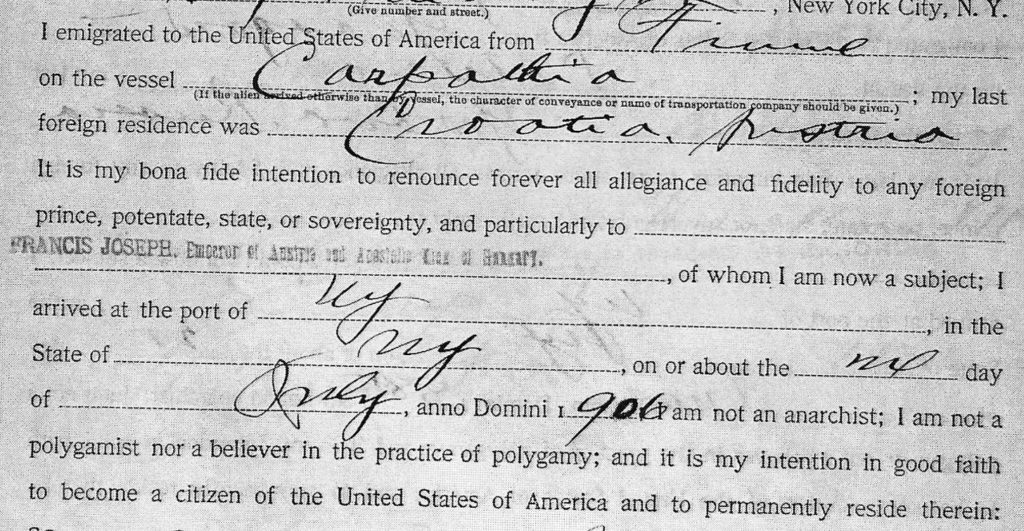 (Give number and street.) , New York City, N. Y.
I emigrated to the United States of America from Fiume
on the vessel Carpathia
(If the alien arrived otherwise than by vessel, the character of conveyance or name of transportation company should be given.) ; my last
foreign residence was Croatia, Austria
It is my bona fide intention to renounce forever all allegiance and fidelity to any foreign
prince, potentate, state, or sovereignty, and particularly to
FRANCIS JOSEPH, Emperor of Austria and Apostolic King of Hungary.
, of whom I am now a subject; I
arrived at the port of NY , in the
State of NY , on or about the day
of July , anno Domini 1 906 I am not an anarchist; I am not a
polygamist nor a believer in the practice of polygamy; and it is my intention in good faith
to become a citizen of the United States of America and to permanently reside therein: